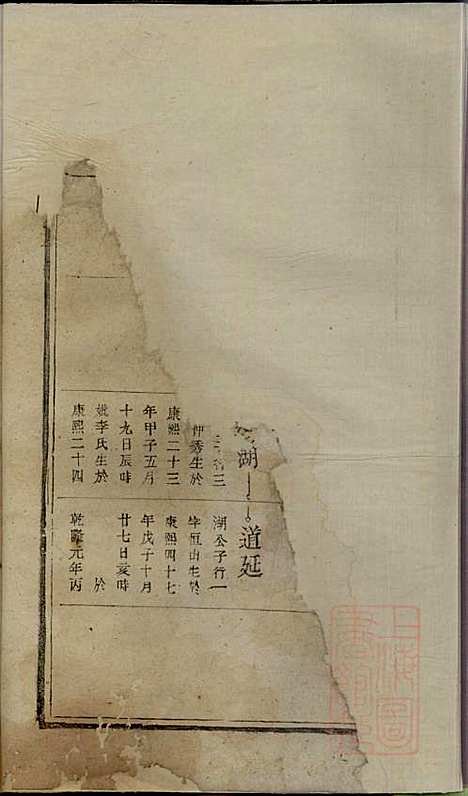 湖 道延
三
仲秀生於
康熙二十三
年甲子五月
十九日辰時
娥李氏生於
康熙二十四
湖公子行一
字恒山生於
康熙四十七
年戊子十月
廿七日亥時
於
乾隆元年丙
上海圖書館藏